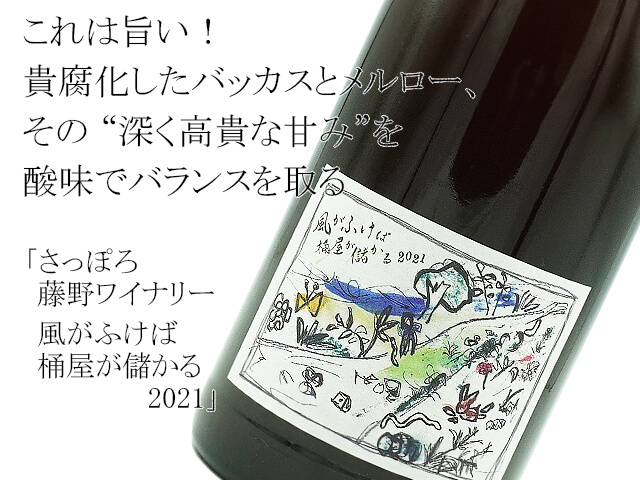 これは旨い！
貴腐化したバッカスとメルロー、
その “深く高貴な甘み”を
酸味でバランスを取る
「さっぽろ
藤野ワイナリー
風がふけば
桶屋が儲かる
2021」
風がふけば
桶屋が儲かる 2021